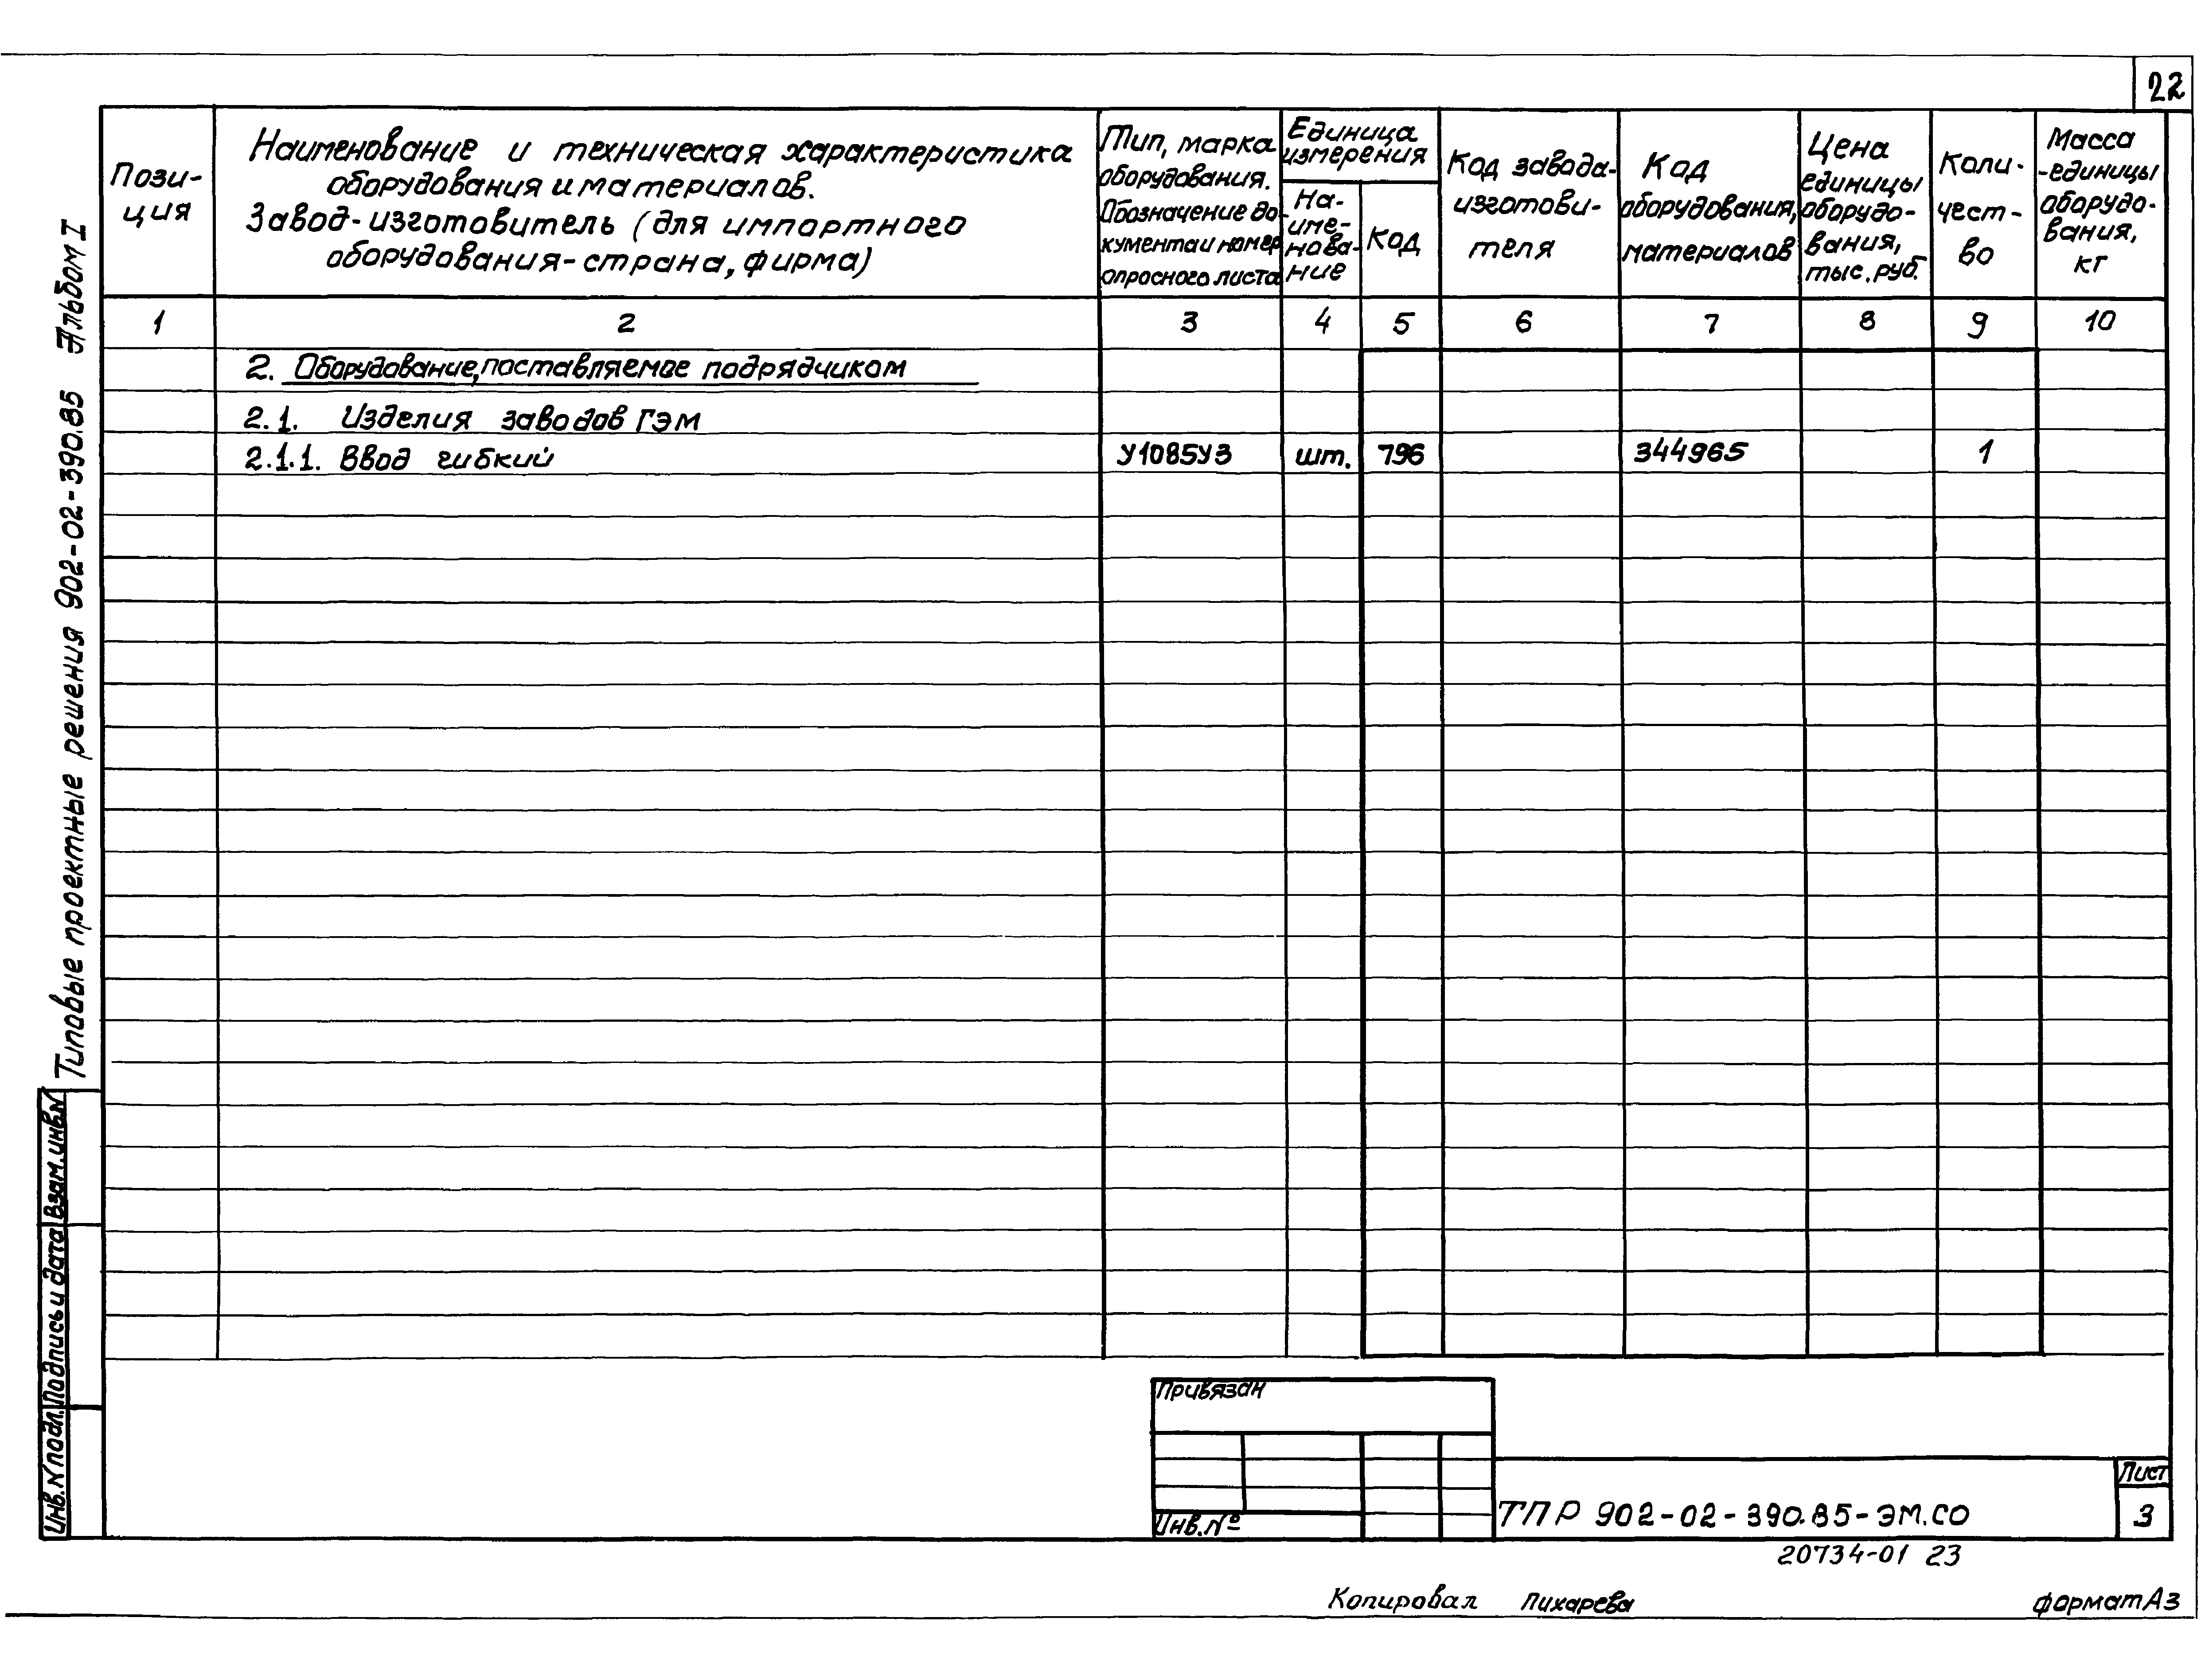 22
Типовые проектные решения 902-02-390.85 Альбом I
Пози-
ция
Наименование и техническая характеристика
оборудования и материалов.
Завод-изготовитель (для импортного
оборудования-страна, фирма)
Тип, марка
оборудования.
Обозначение до-
кумента и номер
опросного листа
Единица
измерения
На-
име-
нова-
ние
Код
Код завода-
изготови-
теля
Код
оборудования,
материалов
Цена
единицы
оборудо-
вания,
тыс. руб.
Коли-
чест-
во
Масса
-единицы
оборудо-
вания,
кг
1 2 3 4 5 6 7 8 9 10
2. Оборудование, поставляемое подрядчиком
2.1. Изделия заводов ГЭМ
2.1.1. Ввод гибкий У1085У3 шт. 796 344965 1
Взам.инв.N
Подпись и дата
Инв.N подл.
Привязан
Инв.№
ТПР 902-02-390.85-ЭМ.СО
Лист
3
20734-01 23
Копировал Лихарева
формат А3